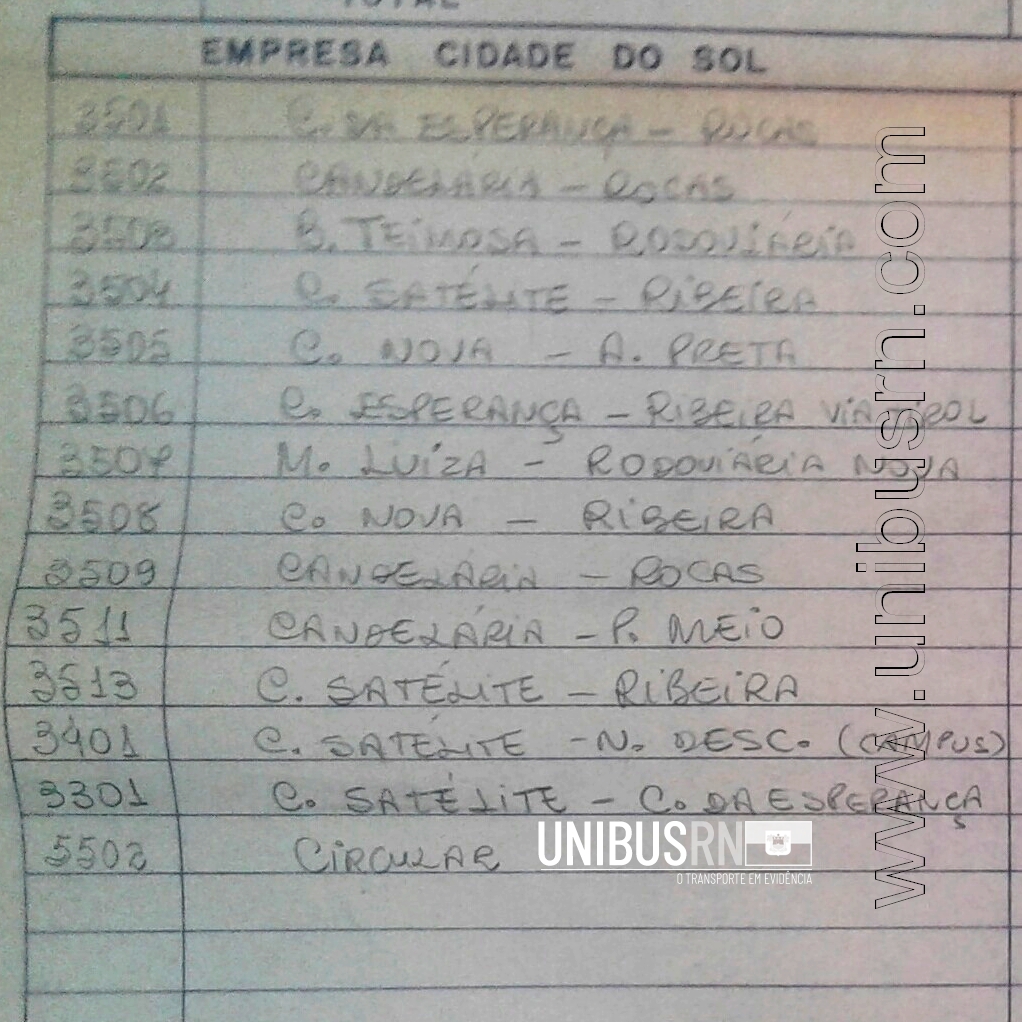 TOTAL
EMPRESA CIDADE DO SOL
3501 C. DA ESPERANÇA - ROCAS
3502 CANDELÁRIA - ROCAS
3503 B. TEIMOSA - RODOVIÁRIA
3504 C. SATÉLITE - RIBEIRA
3505 C. NOVA - A. PRETA
3506 C. ESPERANÇA - RIBEIRA VIA TIROL
3507 M. LUIZA - RODOVIÁRIA NOVA
3508 C. NOVA - RIBEIRA
3509 CANDELÁRIA - ROCAS
3511 CANDELÁRIA - P. MEIO
3513 C. SATÉLITE - RIBEIRA
3401 C. SATÉLITE - N. DESC. (CAMPUS)
3301 C. SATÉLITE - C. DA ESPERANÇA
5502 CIRCULAR
UNIBUSRN
O TRANSPORTE EM EVIDÊNCIA
www.unibusrn.com